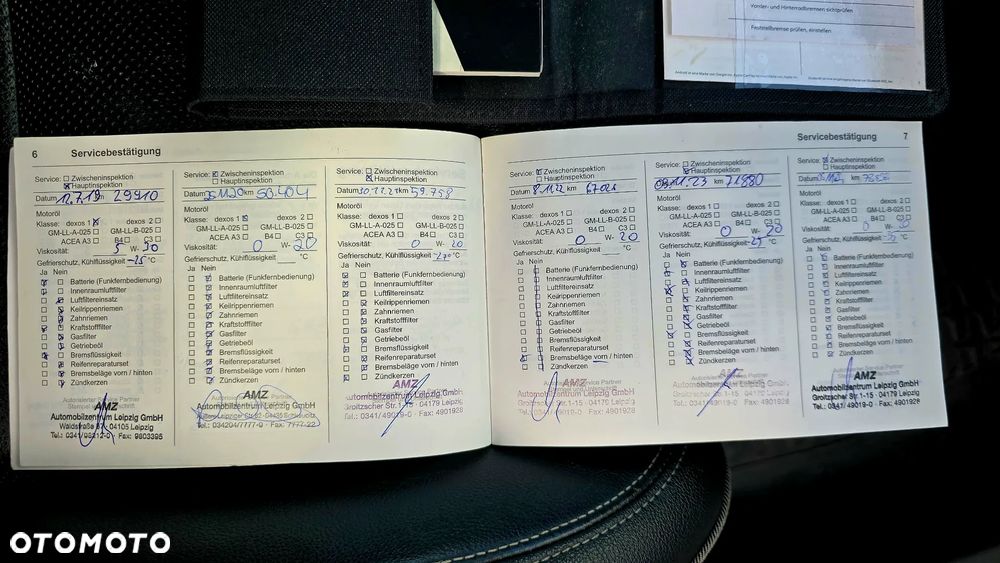 Vorder- und Hinterradbremsen sichtprüfen
Feststellbremse prüfen, einstellen
6 Servicebestätigung
Service: Zwischeninspektion
Hauptinspektion
Datum 12.7.19 km 29910
Motoröl
Klasse: dexos 1 dexos 2
GM-LL-A-025 GM-LL-B-025
ACEA A3 B4 C3
Viskosität: 5 W- 30
Gefrierschutz, Kühlflüssigkeit -25 °C
Ja Nein
Batterie (Funkfernbedienung)
Innenraumluftfilter
Luftfiltereinsatz
Keilrippenriemen
Zahnriemen
Kraftstofffilter
Gasfilter
Getriebeöl
Bremsflüssigkeit
Reifenreparaturset
Bremsbeläge vorn / hinten
Zündkerzen
Autorisierter Service Partner
AMZ
Automobilzentrum Leipzig GmbH
04105 Leipzig
Fax: 9803395
Service: Zwischeninspektion
Hauptinspektion
Datum km 50.404
Motoröl
Klasse: dexos 1 dexos 2
GM-LL-A-025 GM-LL-B-025
ACEA A3 B4 C3
Viskosität: 0 W- 20
Gefrierschutz, Kühlflüssigkeit °C
Ja Nein
Batterie (Funkfernbedienung)
Innenraumluftfilter
Luftfiltereinsatz
Keilrippenriemen
Zahnriemen
Kraftstofffilter
Gasfilter
Getriebeöl
Bremsflüssigkeit
Reifenreparaturset
Bremsbeläge vorn / hinten
Zündkerzen
AMZ
Automobilzentrum Leipzig GmbH
Tel.: 034204/7777-0 Fax: 7777-22
Service: Zwischeninspektion
Hauptinspektion
Datum 30.11.21 km 59.758
Motoröl
Klasse: dexos 1 dexos 2
GM-LL-A-025 GM-LL-B-025
ACEA A3 B4 C3
Viskosität: 0 W- 20
Gefrierschutz, Kühlflüssigkeit °C
Ja Nein
Batterie (Funkfernbedienung)
Innenraumluftfilter
Luftfiltereinsatz
Keilrippenriemen
Zahnriemen
Kraftstofffilter
Gasfilter
Getriebeöl
Bremsflüssigkeit
Reifenreparaturset
Bremsbeläge vorn / hinten
Zündkerzen
AMZ
Automobilzentrum Leipzig GmbH
Groitzscher Str.1-15 · 04179 Leipzig
Tel.: 0341/49019-0 · Fax: 4901928
Servicebestätigung 7
Service: Zwischeninspektion
Hauptinspektion
Datum 8.11.22 km
Motoröl
Klasse: dexos 1 dexos 2
GM-LL-A-025 GM-LL-B-025
ACEA A3 B4 C3
Viskosität: 0 W- 20
Gefrierschutz, Kühlflüssigkeit °C
Ja Nein
Batterie (Funkfernbedienung)
Innenraumluftfilter
Luftfiltereinsatz
Keilrippenriemen
Zahnriemen
Kraftstofffilter
Gasfilter
Getriebeöl
Bremsflüssigkeit
Reifenreparaturset
Bremsbeläge vorn / hinten
Zündkerzen
AMZ
Automobilzentrum Leipzig GmbH
Groitzscher Str.1-15 · 04179 Leipzig
Tel.: 0341/49019-0 · Fax: 4901928
Service: Zwischeninspektion
Hauptinspektion
11.23 km 71.880
Motoröl
Klasse: dexos 1 dexos 2
GM-LL-A-025 GM-LL-B-025
ACEA A3 B4 C3
Viskosität: 0 W- 20
Gefrierschutz, Kühlflüssigkeit -25 °C
Ja Nein
Batterie (Funkfernbedienung)
Innenraumluftfilter
Luftfiltereinsatz
Keilrippenriemen
Zahnriemen
Kraftstofffilter
Gasfilter
Getriebeöl
Bremsflüssigkeit
Reifenreparaturset
Bremsbeläge vorn / hinten
Zündkerzen
AMZ
Automobilzentrum Leipzig GmbH
Groitzscher Str.1-15 · 04179 Leipzig
Fax: 4901928
Service: Zwischeninspektion
Hauptinspektion
Datum km
Motoröl
Klasse: dexos 1 dexos 2
GM-LL-A-025 GM-LL-B-025
ACEA A3 B4 C3
Viskosität: 0 W-
Gefrierschutz, Kühlflüssigkeit °C
Ja Nein
Batterie (Funkfernbedienung)
Innenraumluftfilter
Luftfiltereinsatz
Keilrippenriemen
Zahnriemen
Kraftstofffilter
Gasfilter
Getriebeöl
Bremsflüssigkeit
Reifenreparaturset
Bremsbeläge vorn / hinten
Zündkerzen
AMZ
Automobilzentrum Leipzig GmbH
Groitzscher Str.1-15 · 04179 Leipzig
Tel.: 0341/49019-0 · Fax: 4901928
OTOMOTO